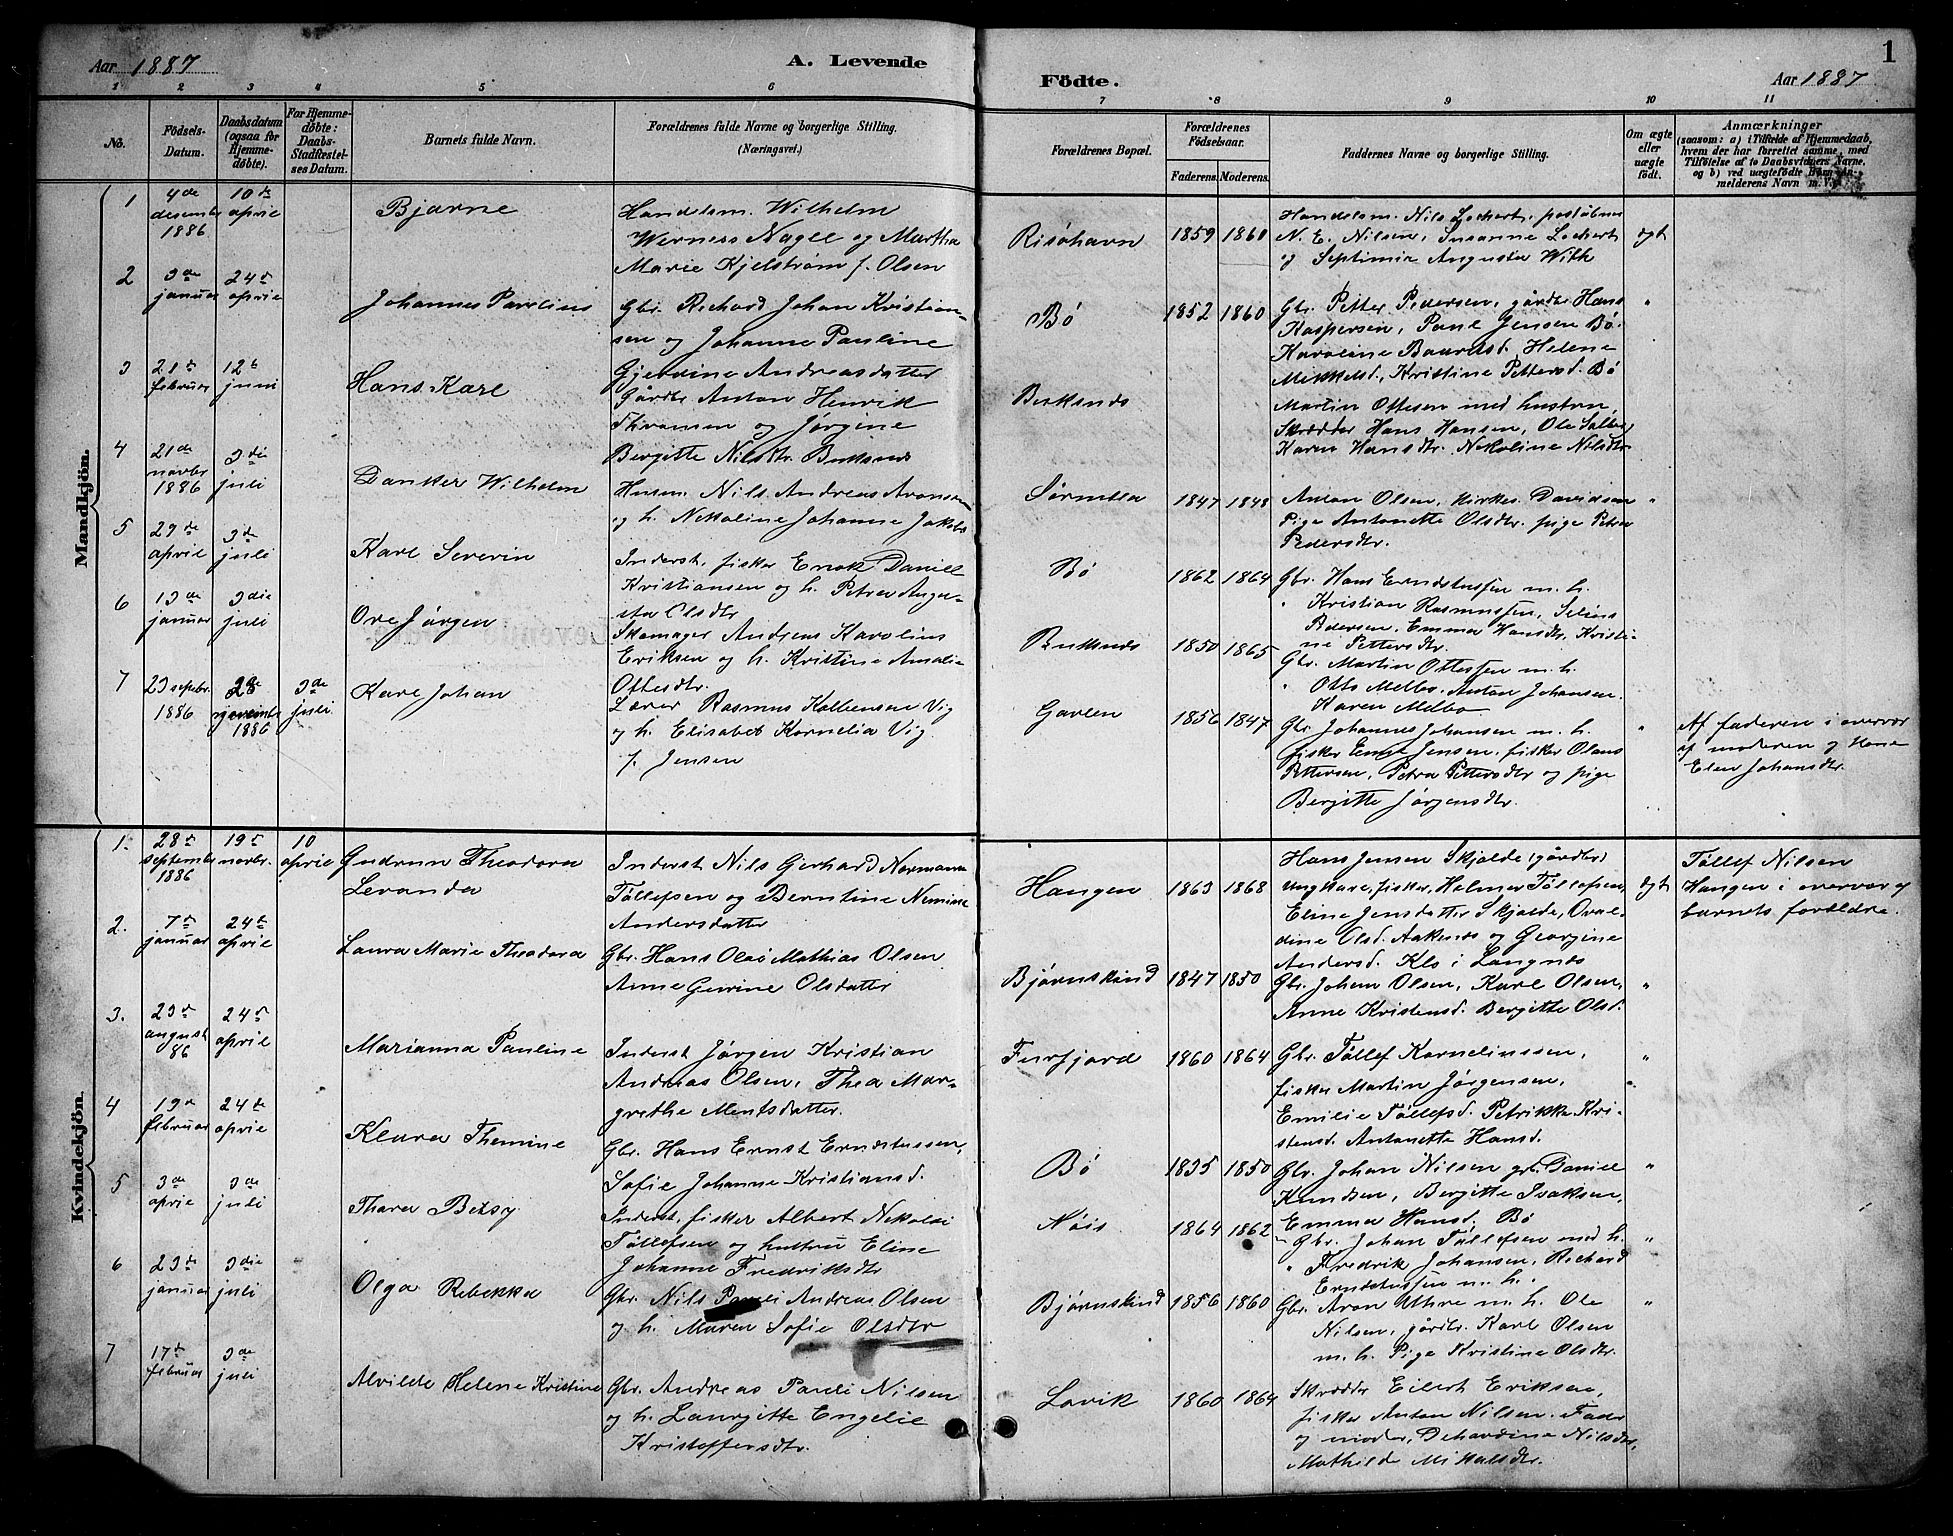 Aar 1887
A. Levende
Födte.
Aar 1887
1
1 2 3 4 5 6 7 8 9 10 11
No.
Födsels-Datum.
Daabsdatum (ogsaa for Hjemme-döbte).
For Hjemme-döbte: Daabs-Stadfæstel-ses Datum.
Barnets fulde Navn.
Forældrenes fulde Navne og borgerlige Stilling. (Næringsvei.)
Forældrenes Bopæl.
Forældrenes Födselsaar.
Faderens. Moderens.
Faddernes Navne og borgerlige Stilling.
Om ægte eller uægte födt.
Anmærkninger
(saasom: a) i Tilfælde af Hjemmedaab, hvem der har forrettet samme, med Tilföielse af to Daabsvidners Navne, og b) ved uægtefödte Börn An-melderens Navn m. V.)
Mandkjön.
1 4de desember 1886 10de april Bjarne
Handelsm. Wilhelm
Werness Nagel og Martha
Marie Kjelstrøm f. Olsen
Risøhavn 1859 1860
Handelsm. Nils Lockert, postaabner
N. E. Nilsen, Susanne Lockert
og Septimia Augusta With
ægt
2 3de januar 24de april Johannes Paulinus
Gbr. Richard Johan Kristian-
sen og Johanne Pauline
Gjerdine Andreasdatter
Bø 1852 1860
Gbr. Petter Pedersen, gårdbr Hans
Kaspersen, Paul Jensen Bø.
Karoline Baardsd. Helene
Mikkelsd., Kristine Pettersd. Bø
"
3 21de februar 12te juni Hans Karl
Gårdbr Anton Henrik
og Jørgine
Bergitte Nilsdtr. Buksnes
Buksnes
Martin Ottesen med hustru,
Skrædder Hans Hansen, Ole
Karen Hansdtr. Nekoline Nilsdtr
4 21de novbr 1886 3die juli Danker Wilhelm
Husm. Nils Andreas Aronsen
og h. Nekoline Johanne Jakobs
Sørmela 1847 1848
Anton Olsen, kirkes. Davidsen
Pige Antonette Olsdtr. pige Petra
Pedersdtr.
"
5 29de april 3de juli Karl Severin
Inderst, fisker Enok Daniel
Kristiansen og h. Petra Augu-
sta Olsdtr
Bø 1862 1864
Gbr. Hans Erndstussen m. h.
" Kristian Rasmussen, Selius
Pedersen, Emma Hansdtr, Kristi-
ne Pettersdtr.
6 13de januar 3die juli Ove Jørgen
Skomager Andreas Karolius
Eriksen og h. Kristine Amali-
Ottesdtr.
Buksnes 1850 1865
Gbr. Martin Ottessen m. h.
" Otto Melbo. Anton Johansen.
Karen Melbo
7 23 septbr. 1886 28 november 1886 3de juli Karl Johan
Lærer Rasmus Kolbensen Vig
og h. Elisabet Kornelia Vig
f. Jensen
Gavlen 1856 1847
Gbr. Johannes Johansen m. h.
fisker Enok Jensen, fisker Olaus
Pettersen, Petra Pettersdtr og pige
Bergitte Jørgensdtr.
"
Af faderen i overvær
af moderen og Kone
Elen Johansdtr.
Kvindekjön.
1. 28de september 1886 19de novbr. 10 april Gudrun Theodora
Levanda
Inderst Nils Gerhard Normann
Tøllefsen og Berntine Nemine
Andersdatter
Haugen 1863 1868
Hans Jensen Skjolde (gårdbr)
Ungkarl, fisker, Helmer Tøllefsen,
Eline Jensdatter Skjolde, Oval-
dine Olsd. Aaknes og Georgine
Andersd. Klo i Langnes
ægt
Tøllef Nilsen
Haugen i overvær af
barnets foreldre.
2. 7de januar 24de april Laura Marie Theodora
Gbr. Hans Olai Mathias Olsen
Anne Gurine Olsdatter
Bjørnskind 1847 1850
Gbr. Johan Olsen, Karl Olsen,
Anne Kristensd. Bergitte Olsd.
"
3. 23de august 86 24de april Marianna Pauline
Inderst Jørgen Kristian
Andreas Olsen, Thea Mar-
grethe Mentsdatter.
Furfjord 1860 1864
Gbr. Tøllef Kornelinssen,
fisker Martin Jørgensen,
Emilie Tøllefsd. Petrikke Kri-
stensd. Antonette Hansd.
"
4 19de februar 24de april Klara Themine
Gbr. Hans Ernst Erndstussen,
Sofie Johanne Kristiansd.
Bø 1835 1850
Gbr. Johan Nilsen gbr. Daniel
Knudsen, Bergitte Isaksen,
Emma Hansd. Bø
"
5 3de april 3de juli Thora Betsy
Inderst, fisker Albert Nekolai
Tøllefsen og hustru Eline
Johanne Fredriksdtr
Nöis 1864 1862
Gbr. Johan Tøllefsen med h.
" Fredrik Johansen, Richard
Erndstussen m. h.
"
6 23de januar 3die juli Olga Rebekka
Gbr. Nils Pauli Andreas Olsen
og h. Maren Sofie Olsdtr
Bjørnskind 1856 1860
Gbr. Aron Uthre m. h. Ole
Nilsen, gårdbr. Karl Olsen
m. h. Pige Kristine Olsdtr.
"
7 17de februar 3de juli Alvilde Helene Kristine
Gbr. Andreas Pauli Nilsen
og h. Laurgitte Engelie
Kristoffersdtr.
Lovik 1860 1864
Skrædder Eilert Eriksen,
fisker Anton Nilsen. Fader
og moder, Dehardine Nilsdtr,
Mathilde Mikalsdtr.